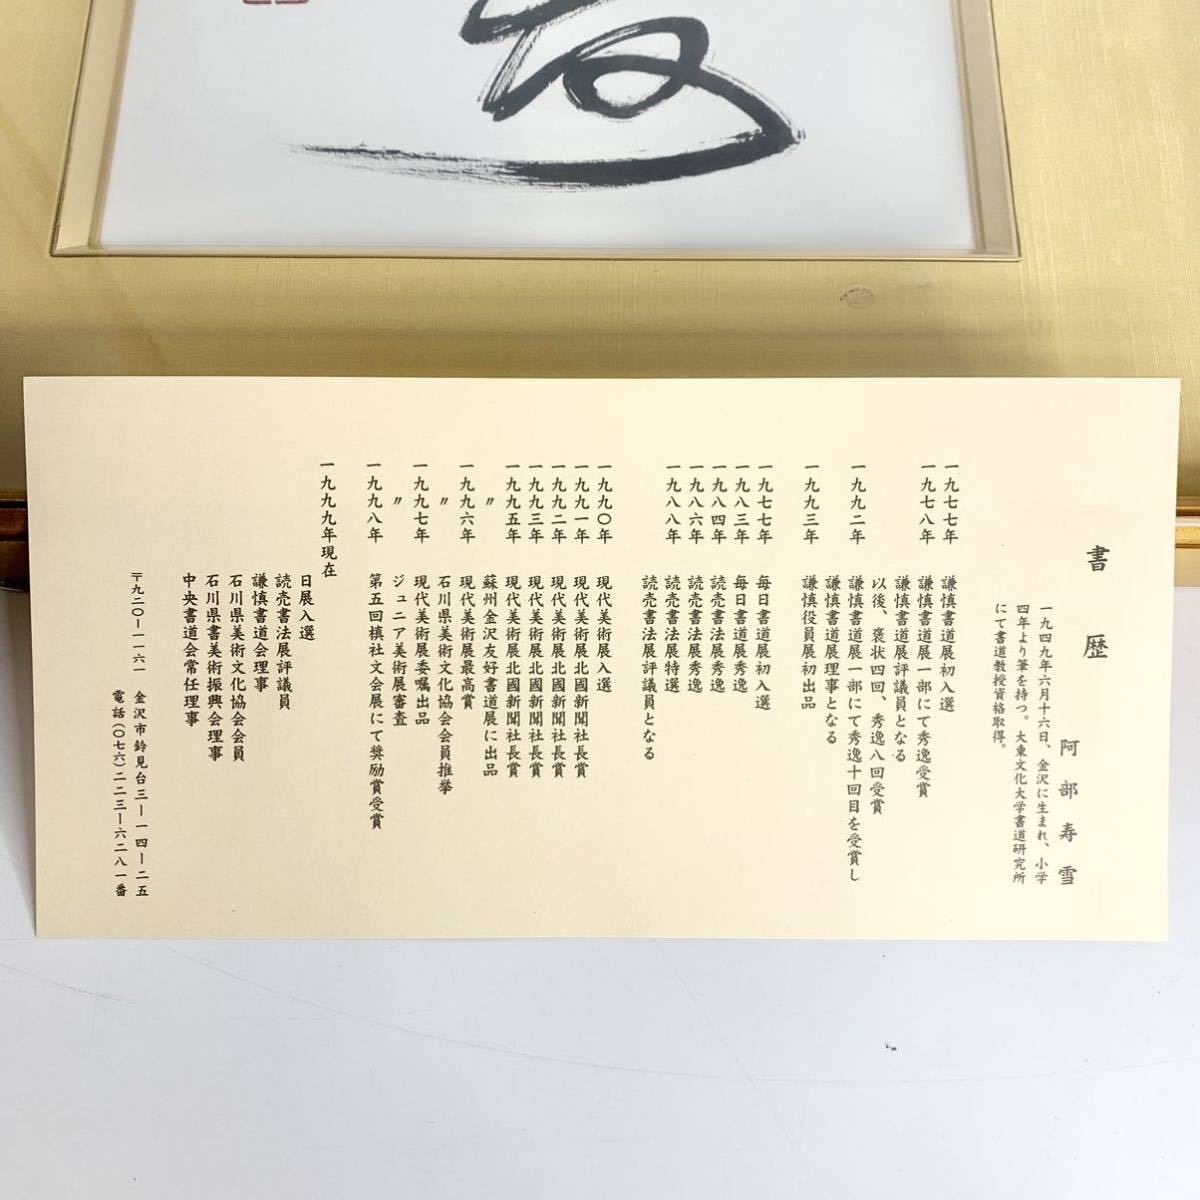 書歴
阿部寿雪
一九四九年六月十六日、金沢に生まれ、小学
四年より筆を持つ。大東文化大学書道研究所
にて書道教授資格取得。
一九七七年 謙慎書道展初入選
一九七八年 謙慎書道展一部にて秀逸受賞
謙慎書道展評議員となる
以後、褒状四回、秀逸八回受賞
一九九二年 謙慎書道展一部にて秀逸十回目を受賞し
謙慎書道展理事となる
一九九三年 謙慎役員展初出品
一九七七年 毎日書道展初入選
一九八三年 毎日書道展秀逸
一九八四年 読売書法展秀逸
一九八六年 読売書法展秀逸
一九八八年 読売書法展特選
読売書法展評議員となる
一九九〇年 現代美術展入選
一九九一年 現代美術展北國新聞社長賞
一九九二年 現代美術展北國新聞社長賞
一九九三年 現代美術展北國新聞社長賞
一九九五年 現代美術展北國新聞社長賞
〃 蘇州金沢友好書道展に出品
一九九六年 現代美術展最高賞
〃 石川県美術文化協会会員推挙
一九九七年 現代美術展委嘱出品
〃 ジュニア美術展審査
一九九八年 第五回槙社文会展にて奨励賞受賞
一九九九年現在
日展入選
読売書法展評議員
謙慎書道会理事
石川県美術文化協会会員
石川県書美術振興会理事
中央書道会常任理事
〒九二〇ー一一六一 金沢市鈴見台三ー一四ー二五
電話(〇七六)二二三ー六二八一番